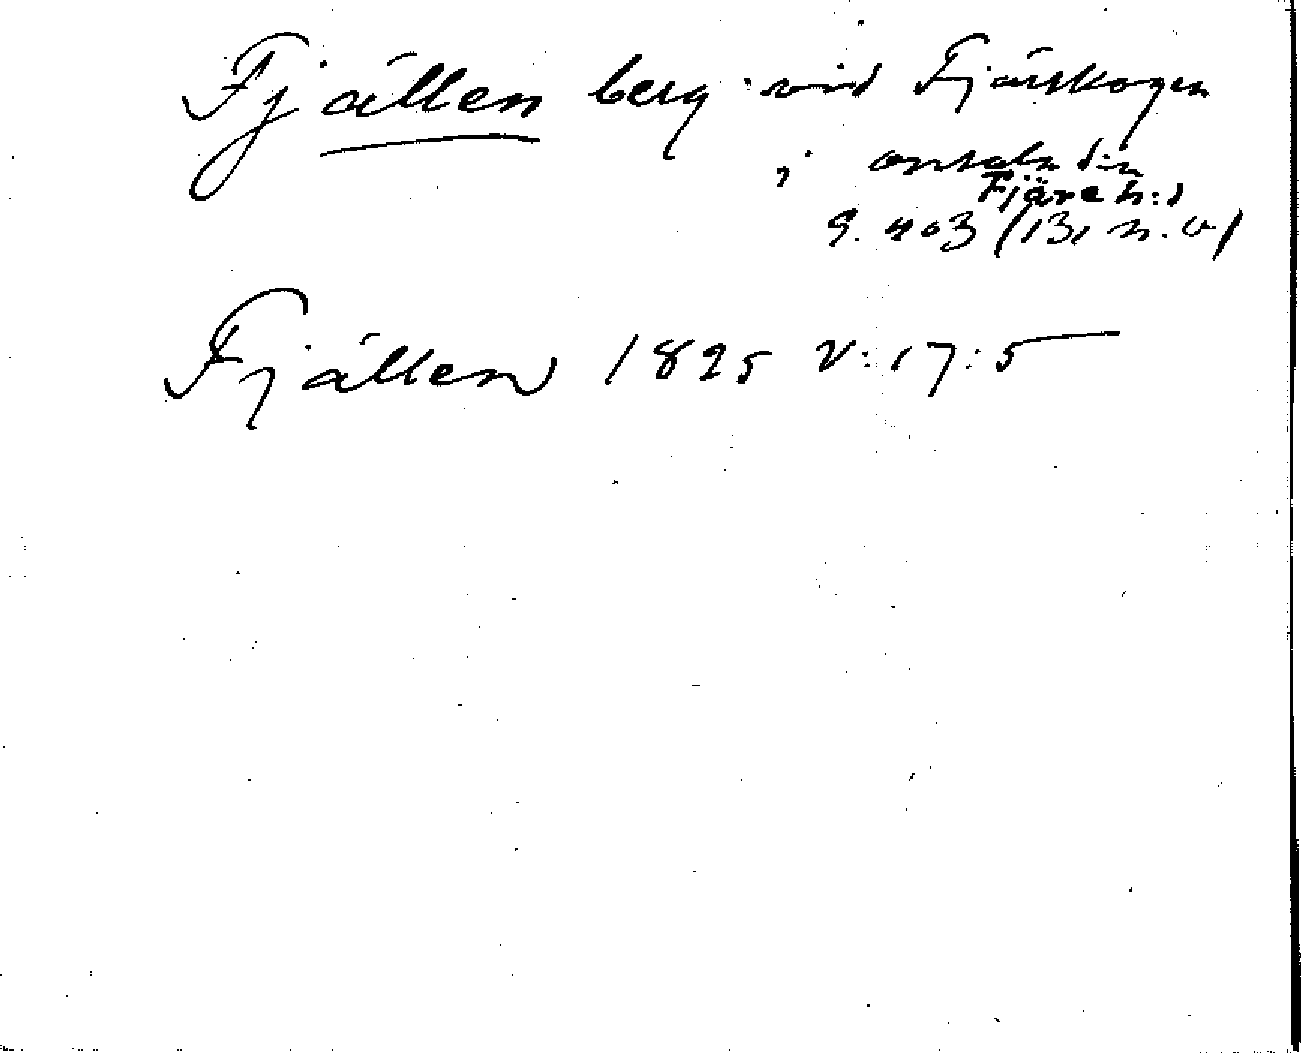 Fjällen berg vid Fjärskogen
i onsala s:n
Fjäre h:d
S. 403 (131 n.v)
Fjällen 1825 V:17:5